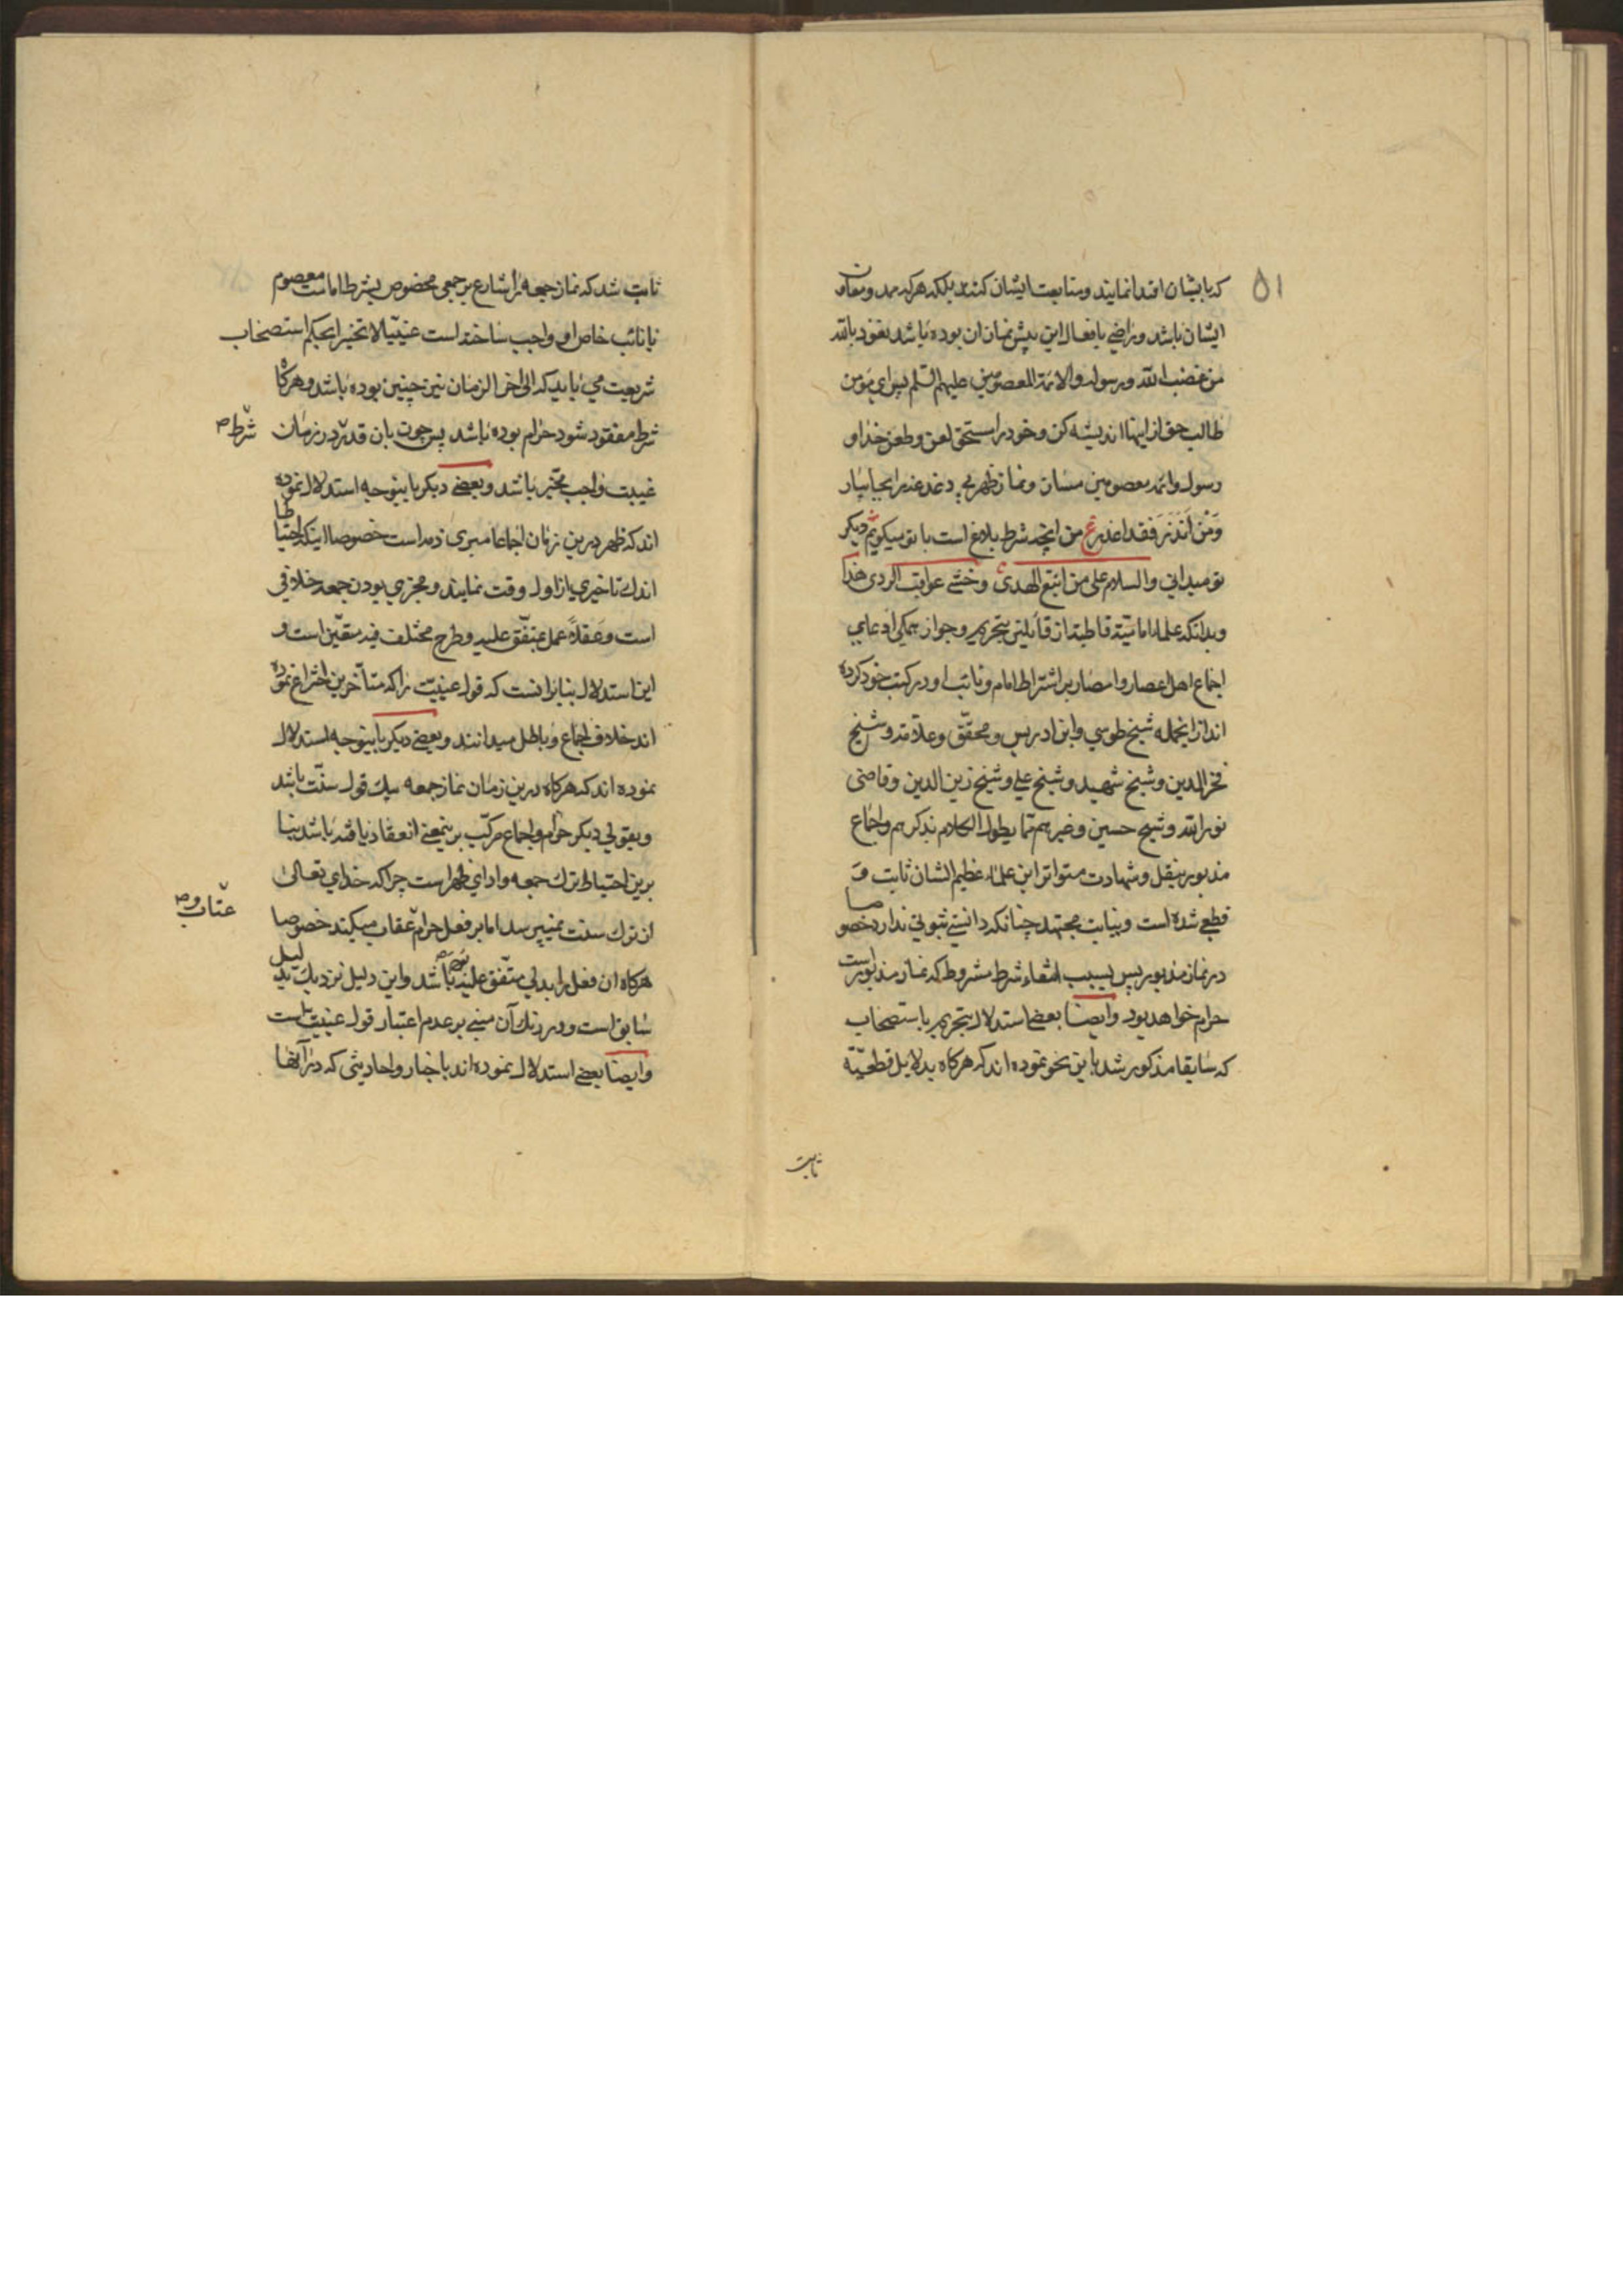 ۵۱
که بایشان اقتدا نمایند و متابعت ایشان کنند بلکه هر که ممد و معاون
ایشان باشد و راضی بافعال این پیش نمازان بوده باشد نعوذ بالله
من غضب الله و رسوله والائمة المعصومین علیهم السلم پس ای مؤمن
طالب حق از اینها اندیشه کن و خود را مستحق لعن و طعن خدا و
رسول و ائمه معصومین مسان و نماز ظهر بی دغدغه را بجا بیار
وَمَنْ اَنْذَرَ فَقَد اعذر ع من انچه شرط بلاغ است با تو میکویم دیکر
تو میدانی والسلام علی من اتبع الهدی و خشی عواقب الردی
و بدانکه علماء امامیّة قاطبة از قائلین بتحریم و جواز همکی ادعای
اجماع اهل اعصار و امصار بر اشتراط امام و نائب او در کتب خود کرده
اند از انجمله شیخ طوسی و ابن ادریس و محقّق و علاّمه و شیخ
فخر الدین و شیخ شهید و شیخ علی و شیخ زین الدین و قاضی
نور الله و شیخ حسین و غیرهم مما یطول الکلام بذکرهم و اجماع
مذبور بنقل و شهادت متواتر این علماء عظیم الشان ثابت و
قطعی شده است و نیابت مجتهد چنانکه دانستی ثبوتی ندارد خصوصا
در نماز مذبور پس بسبب انتفاء شرط مشروط که نماز مذبور است
حرام خواهد بود وایضا بعضی استدلال بتحریم باستصحاب
که سابقا مذکور شد باین نحو نموده اند که هرکاه بدلایل قطعیّه
ثابت
ثابت شد که نماز جمعه را شارع بر جمعی مخصوص بشرط امامت معصوم
یا نائب خاص او واجب ساخته است عینیّا لا تخییرا بحکم استصحاب
شریعت می باید که الی اخر الزمان نیز چنین بوده باشد و هرکاه
شرط مفقود شود حرام بوده باشد پس چون بان قدیر در زمان
شرط ص
غیبت واجب مخیّر باشد و بعضی دیکر باینوجه استدلال نموده
اند که ظهر درین زمان اجماعا مبری ذمه است خصوصا اینکه احتیاطا
اندک تاخیری از اول وقت نمایند و مجزی بودن جمعه خلافی
است و عقلاً عمل بمتّفق علیه و طرح مختلف فیه متعیّن است و
این استدلال بنا بر انست که قول عینیّت را که متأخرین اختراع نموده
اند خلاف اجماع و باطل میدانند و بعضی دیکر باینوجه استدلال
نموده اند که هرکاه درین زمان نماز جمعه بیک قول سنّت باشد
و بقولی دیکر حرام و اجماع مرکّب برینمعنی انعقاد یافته باشد بنا
برین احتیاط ترک جمعه و ادای ظهر است چرا که خدای تعالی
از ترک سنت نمیپرسد اما بر فعل حرام عقاب میکند خصوصا
عتاب و ص
هرکاه ان فعل را بدلی متّفق علیه بوده باشد و این دلیل نزدیک بدلیل
سابق است و در زنک آن مبنی بر عدم اعتبار قول عینیت است
وایضا بعضی استدلال نموده اند باخبار و احادیثی که در آنها